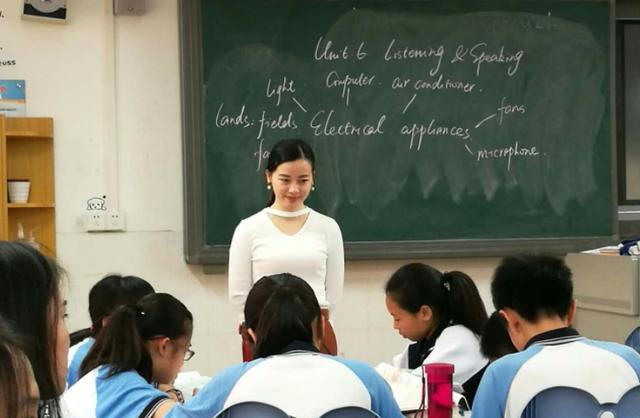 Unit 6 Listening & Speaking
light Computer air conditioner.
lands: fields Electrical appliances fans
fa
microphone.
uss